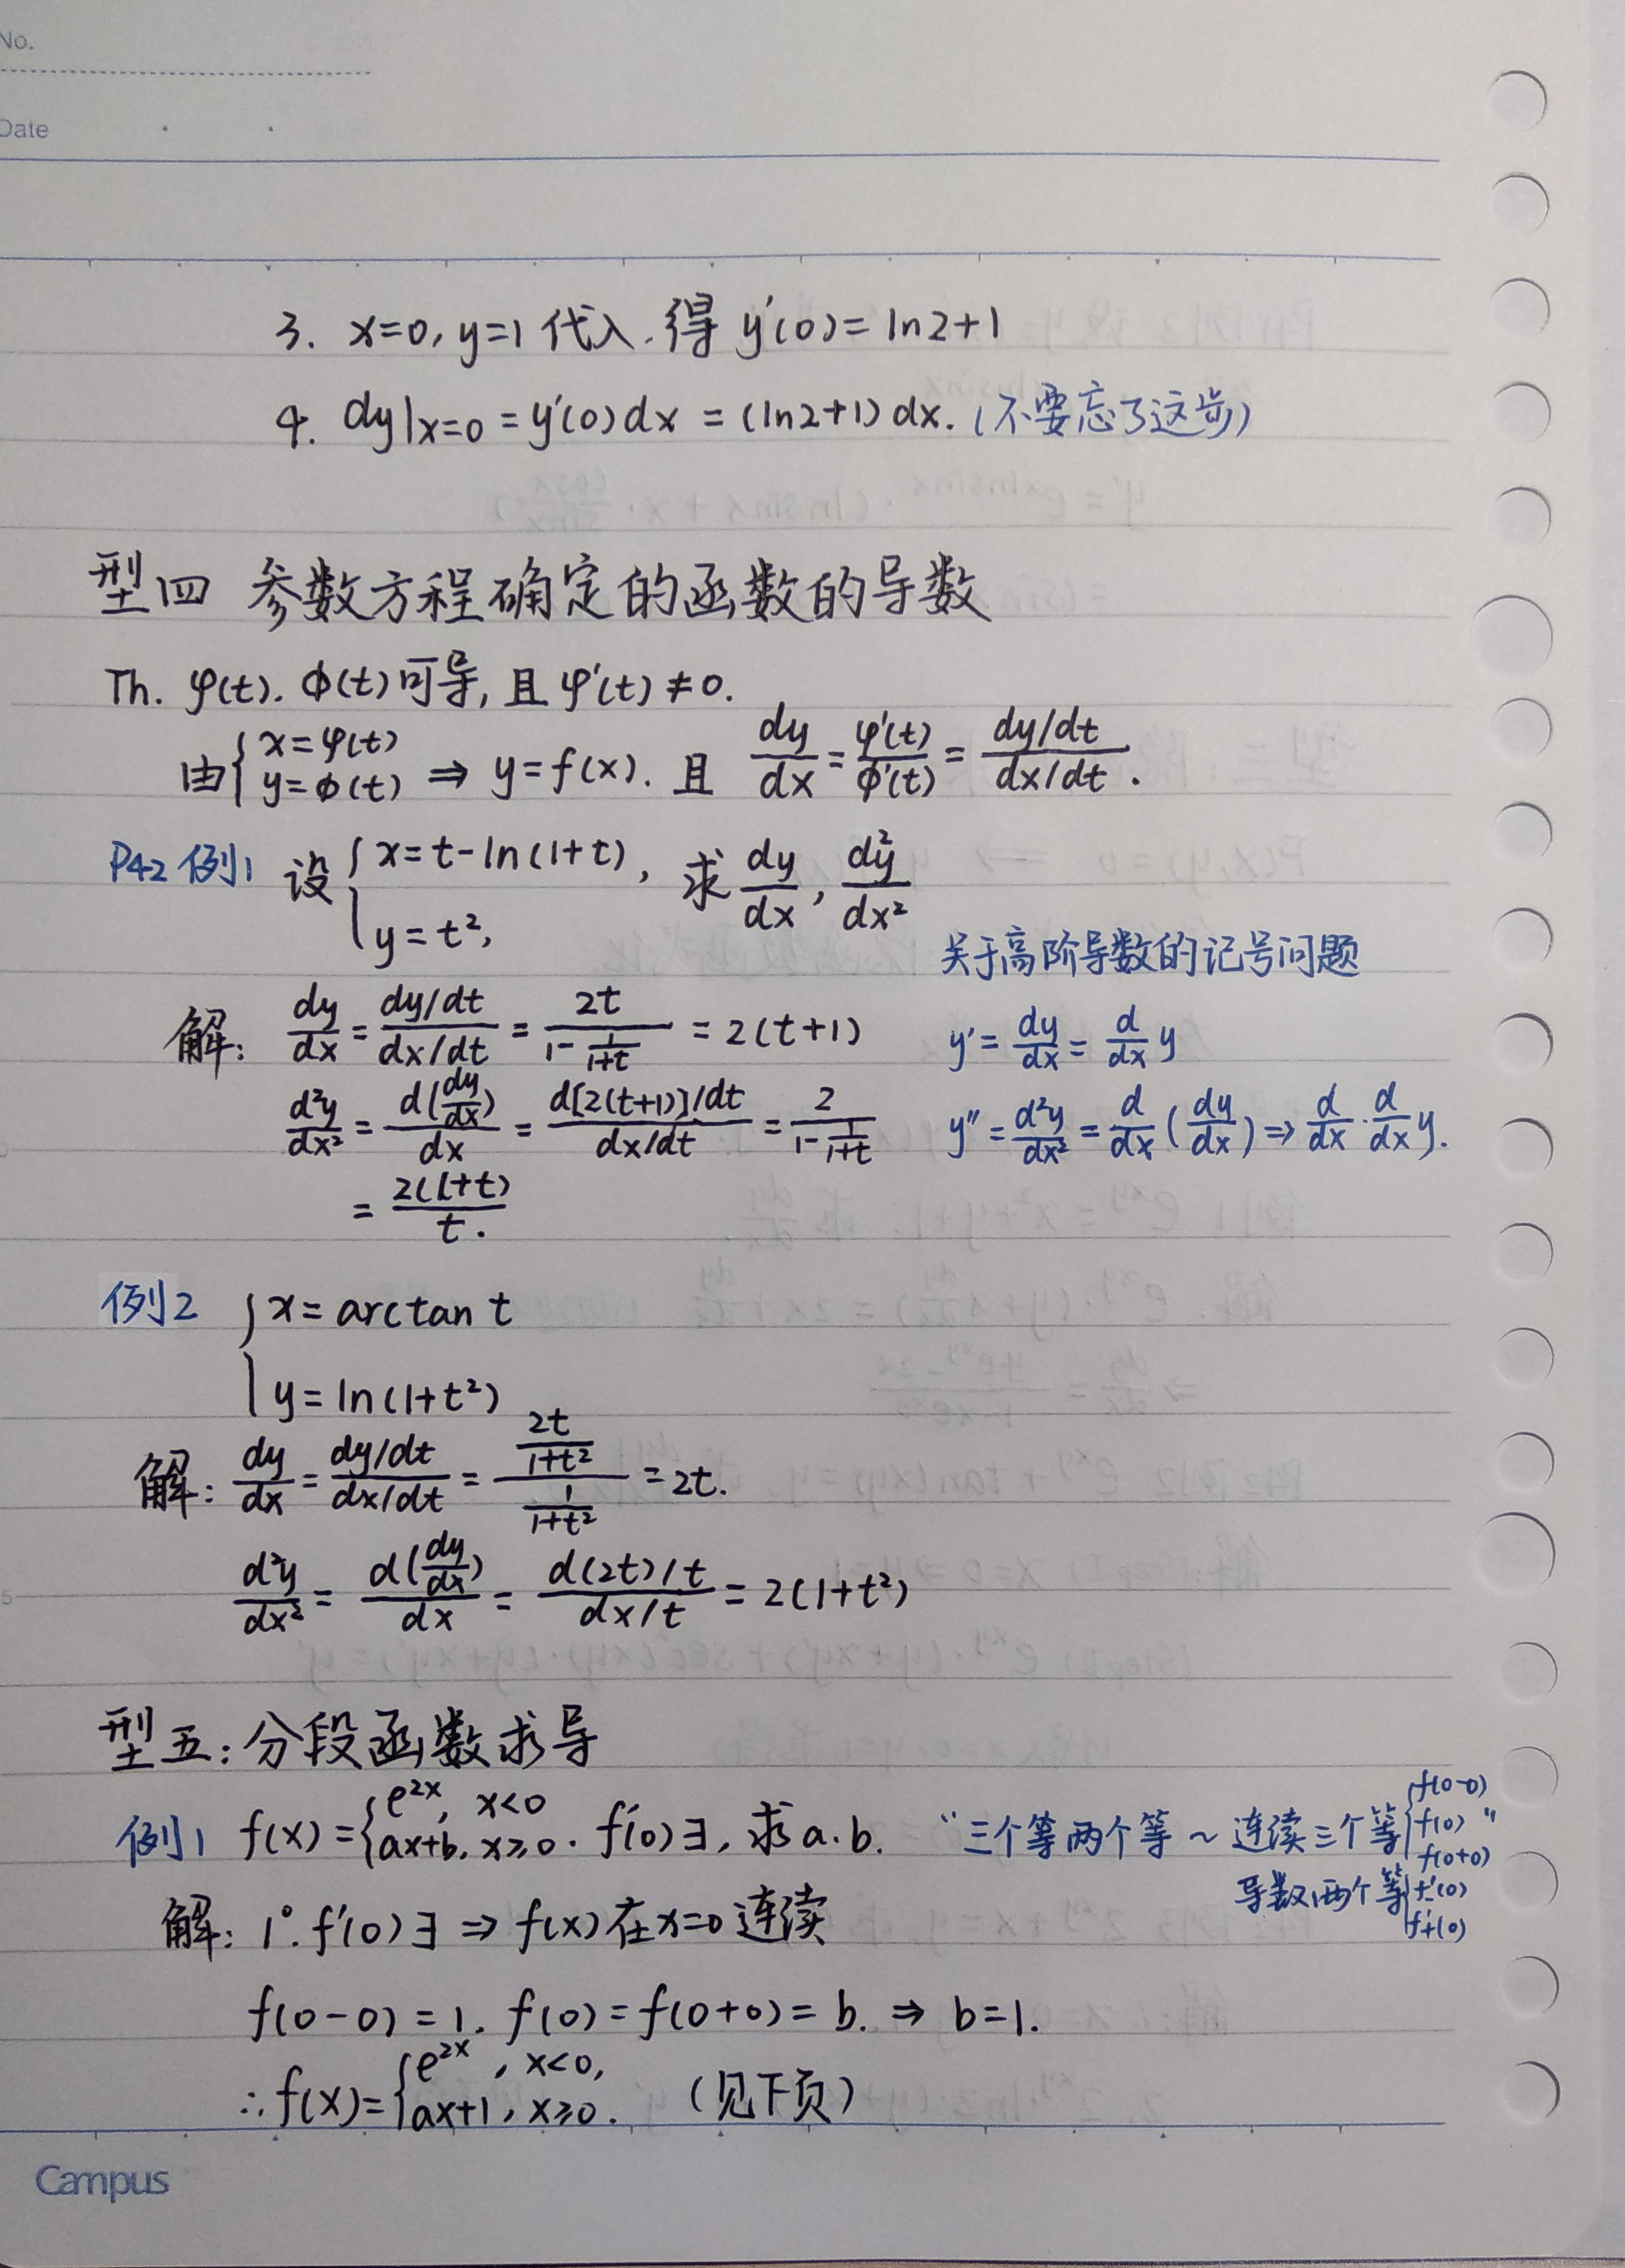 No.
Date
3. x=0, y=1 代入. 得 y'(0) = ln2+1
4. dy|x=0 = y'(0)dx = (ln2+1)dx. (不要忘了这步)
型四 参数方程确定的函数的导数
Th. φ(t). ϕ(t)可导, 且 φ'(t) ≠ 0.
由{x=φ(t) y=ϕ(t) ⇒ y=f(x). 且 dy/dx = φ'(t)/ϕ'(t) = (dy/dt)/(dx/dt).
P42 例1 设{x=t-ln(1+t), y=t², 求 dy/dx, d²y/dx²
关于高阶导数的记号问题
解: dy/dx = (dy/dt)/(dx/dt) = 2t/(1-1/(1+t)) = 2(t+1)
y' = dy/dx = d/dx y
d²y/dx² = d(dy/dx)/dx = (d[2(t+1)]/dt)/(dx/dt) = 2/(1-1/(1+t))
y'' = d²y/dx² = d/dx (dy/dx) ⇒ d/dx · d/dx y.
= 2(1+t)/t.
例2 {x = arctan t
y = ln(1+t²)
解: dy/dx = (dy/dt)/(dx/dt) = (2t/(1+t²))/(1/(1+t²)) = 2t.
d²y/dx² = d(dy/dx)/dx = (d(2t)/t)/(dx/t) = 2(1+t²)
型五: 分段函数求导
例1 f(x) = {e^2x, x<0 ax+b, x≥0. f'(0)∃, 求a.b.
"三个等两个等 ~ 连续三个等{f(0-0) f(0) f(0+0)"
导数两个等{f'-(0) f'+(0)
解: 1°. f'(0)∃ ⇒ f(x)在x=0连续
f(0-0) = 1. f(0) = f(0+0) = b. ⇒ b=1.
∴ f(x) = {e^2x, x<0, ax+1, x≥0. (见下页)
Campus